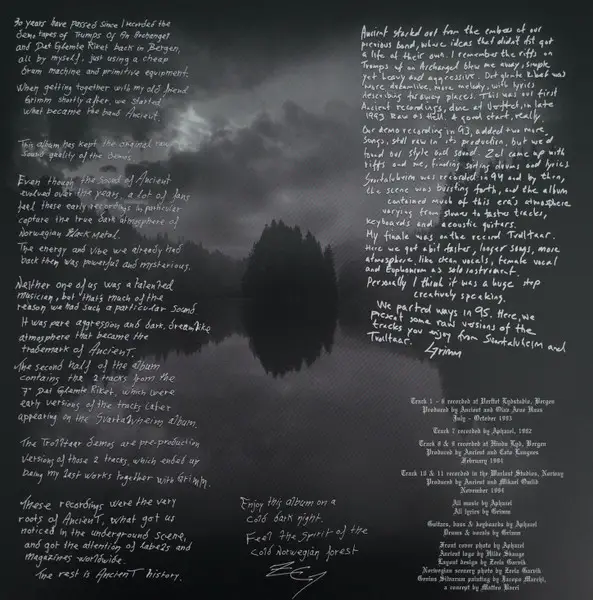 30 years have passed since I recorded the
demo tapes of Trumps of An Archangel
and Det Glemte Riket back in Bergen,
all by myself, just using a cheap
drum machine and primitive equipment.
When getting together with my old friend
Grimm shortly after, we started
what became the band Ancient.
This album has kept the original raw
sound quality of the demos
Even though the sound of Ancient
evolved over the years a lot of fans
feel these early recordings in particular
capture the true dark atmosphere of
Norwegian Black Metal.
The energy and vibe we already had
back then was powerful and mysterious.
Neither one of us was a talented
musician, but that's much of the
reason we had such a particular sound
It was pure aggression and dark, dreamlike
atmosphere that became the
trademark of Ancient.
The second half of the album
contains the 2 tracks from the
7" Det Glemte Riket, which were
early versions of the tracks later
appearing on the Svartalvheim album.
The Trolltaar demos are pre-production
versions of those 2 tracks, which ended up
being my last works together with Grimm.
These recordings were the very
roots of Ancient, what got us
noticed in the underground scene,
and got the attention of labels and
magazines worldwide.
The rest is Ancient history.
Enjoy this album on a
cold dark night.
Feel the spirit of the
cold Norwegian forest
Ancient started out from the embers of our
previous band, whose ideas that didn't get
a life of their own. I remember the riffs on
Trumps of an Archangel blew me away, simple
yet heavy and aggressive. Det glemte Riket was
more dreamlike, more melody, with lyrics
describing faraway places. This was our first
Ancient recordings, done at in late
1993 Raw as Hell. A good start, really.
Our demo recording in 93, added two more
songs, still raw in its production, but we'd
found our style and sound. Zel came up with
riffs and me, finding sorting drums and lyrics
Svartalvheim was recorded in 94 and by then,
the scene was bursting forth, and the album
contained much of this era's atmosphere
varying from slower to faster tracks,
keyboards and acoustic guitars.
My finale was on the record Trolltaar.
Here we got a bit faster, longer songs, more
atmosphere, like clean vocals, female vocal
and Euphonium as solo instrument.
Personally I think it was a huge step
creatively speaking.
We parted ways in 95. Here, we
present some raw versions of the
tracks you enjoy from Svartalvheim and
Trolltaar. Grimm
Track 1 - 6 recorded at Lydstudio, Bergen
Produced by Ancient and Olav Arne Haus
July - October 1993
Track 7 recorded by Aphazel, 1992
Track 8 & 9 recorded at Hindu Lyd, Bergen
Produced by Ancient and Cato Langnes
February 1994
Track 10 & 11 recorded in the Warlout Studios, Norway
Produced by Ancient and Mikael
November 1994
All music by Aphazel
All lyrics by Grimm
Guitars, bass & keyboards by Aphazel
Drums & words by Grimm
Front cover photo by Aphazel
Ancient logo by Hilde Skauge
Layout design by Zeela Garvik
Norwegian scenery photo by Zeela Garvik
Genius Silvarum painting by Jacopo Marchi,
a concept by Matteo Borri